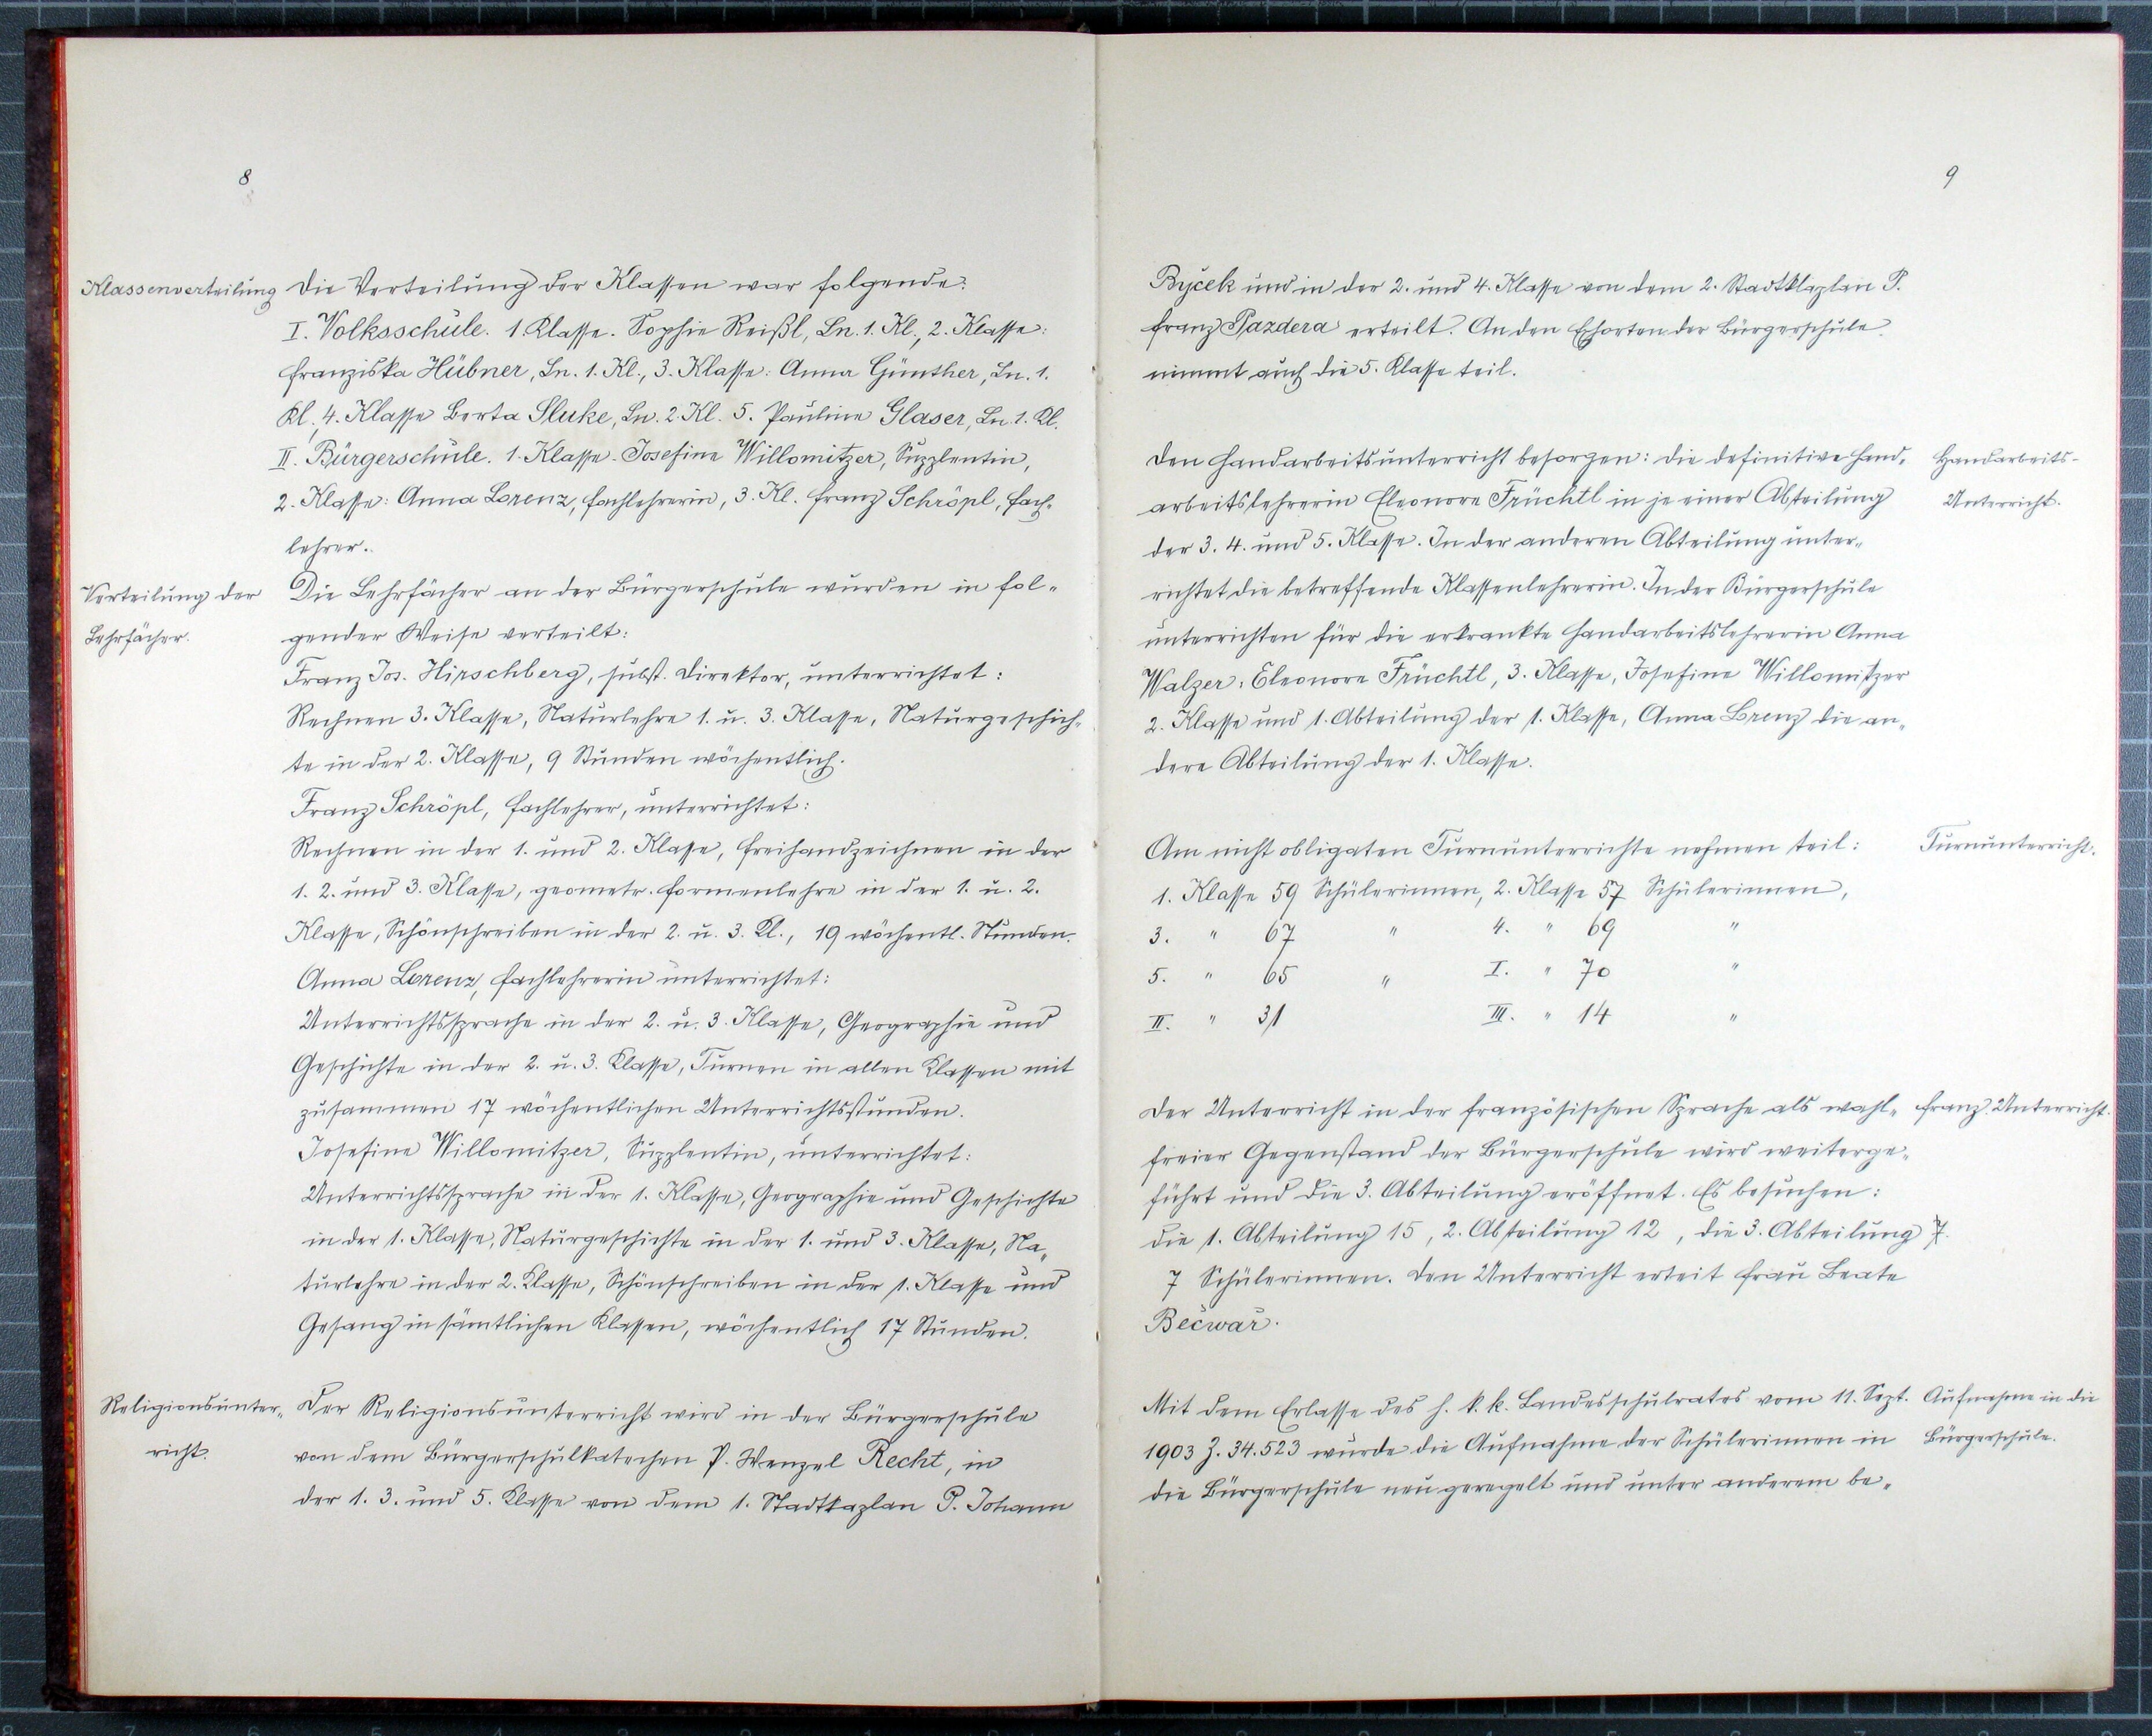 8
Klassenverteilung
Die Verteilung der Klassen war folgende:
I. Volksschule. 1. Klasse. Sophie Reißl, Ln. 1. Kl., 2. Klasse:
Franziska Hübner, Ln. 1. Kl., 3. Klasse: Anna Günther, Ln. 1.
Kl., 4. Klasse Berta Sluke, Ln. 2. Kl. 5. Pauline Glaser, Ln. 1. Kl.
II. Bürgerschule. 1. Klasse. Josefine Willomitzer, Supplentin,
2. Klasse: Anna Lorenz, Fachlehrerin, 3. Kl. Franz Schröpl, Fach-
lehrer.
Verteilung der
Lehrfächer.
Die Lehrfächer an der Bürgerschule wurden in fol-
gender Weise verteilt:
Franz Jos. Hirschberg, subst. Direktor, unterrichtet:
Rechnen 3. Klasse, Naturlehre 1. u. 3. Klasse, Naturgeschich-
te in der 2. Klasse, 9 Stunden wöchentlich.
Franz Schröpl, Fachlehrer, unterrichtet:
Rechnen in der 1. und 2. Klasse, Freihandzeichnen in der
1. 2. und 3. Klasse, geometr. Formenlehre in der 1. u. 2.
Klasse, Schönschreiben in der 2. u. 3. Kl., 19 wöchentl. Stunden.
Anna Lorenz, Fachlehrerin unterrichtet:
Unterrichtssprache in der 2. u. 3. Klasse, Geographie und
Geschichte in der 2. u. 3. Klasse, Turnen in allen Klassen mit
zusammen 17 wöchentlichen Unterrichtsstunden.
Josefine Willomitzer, Supplentin, unterrichtet:
Unterrichtssprache in der 1. Klasse, Geographie und Geschichte
in der 1. Klasse, Naturgeschichte in der 1. und 3. Klasse, Na-
turlehre in der 2. Klasse, Schönschreiben in der 1. Klasse und
Gesang in sämtlichen Klassen, wöchentlich 17 Stunden.
Religionsunter-
richt.
Der Religionsunterricht wird in der Bürgerschule
von dem Bürgerschulkatechen P. Wenzel Recht, in
der 1. 3. und 5. Klasse von dem 1. Stadtkaplan P. Johann
9
Byček und in der 2. und 4. Klasse von dem 2. Stadtklaplan P.
Franz Pazdera erteilt. An den Exhorten der Bürgerschule
nimmt auch die 5. Klasse teil.
Den Handarbeitsunterricht besorgen: die definitive Hand-
arbeitslehrerin Eleonore Früchtl in je einer Abteilung
der 3. 4. und 5. Klasse. In der anderen Abteilung unter-
richtet die betreffende Klassenlehrerin. In der Bürgerschule
unterrichten für die erkrankte Handarbeitslehrerin Anna
Walzer: Eleonore Früchtl, 3. Klasse, Josefine Willomitzer
2. Klasse und 1. Abteilung der 1. Klasse, Anna Lorenz die an-
dere Abteilung der 1. Klasse.
Handarbeits-
Unterricht.
Am nicht obligaten Turnunterrichte nehmen teil:
Turnunterricht.
1. Klasse 59 Schülerinnen, 2. Klasse 57 Schülerinnen,
3. " 67 " 4. " 69 "
5. " 65 " I. " 70 "
II. " 31 III. " 14 "
Der Unterricht in der französischen Sprache als wahl-
franz. Unterricht.
freier Gegenstand der Bürgerschule wird weiterge-
führt und die 3. Abteilung eröffnet. Es besuchen:
die 1. Abteilung 15, 2. Abteilung 12, die 3. Abteilung 7.
7 Schülerinnen. Den Unterricht erteit Frau Beate
Bečwař.
Mit dem Erlasse des h. k. k. Landesschulrates vom 11. Sept.
1903 Z. 34.523 wurde die Aufnahme der Schülerinnen in
die Bürgerschule neu geregelt und unter anderem be-
Aufnahme in die
Bürgerschule.